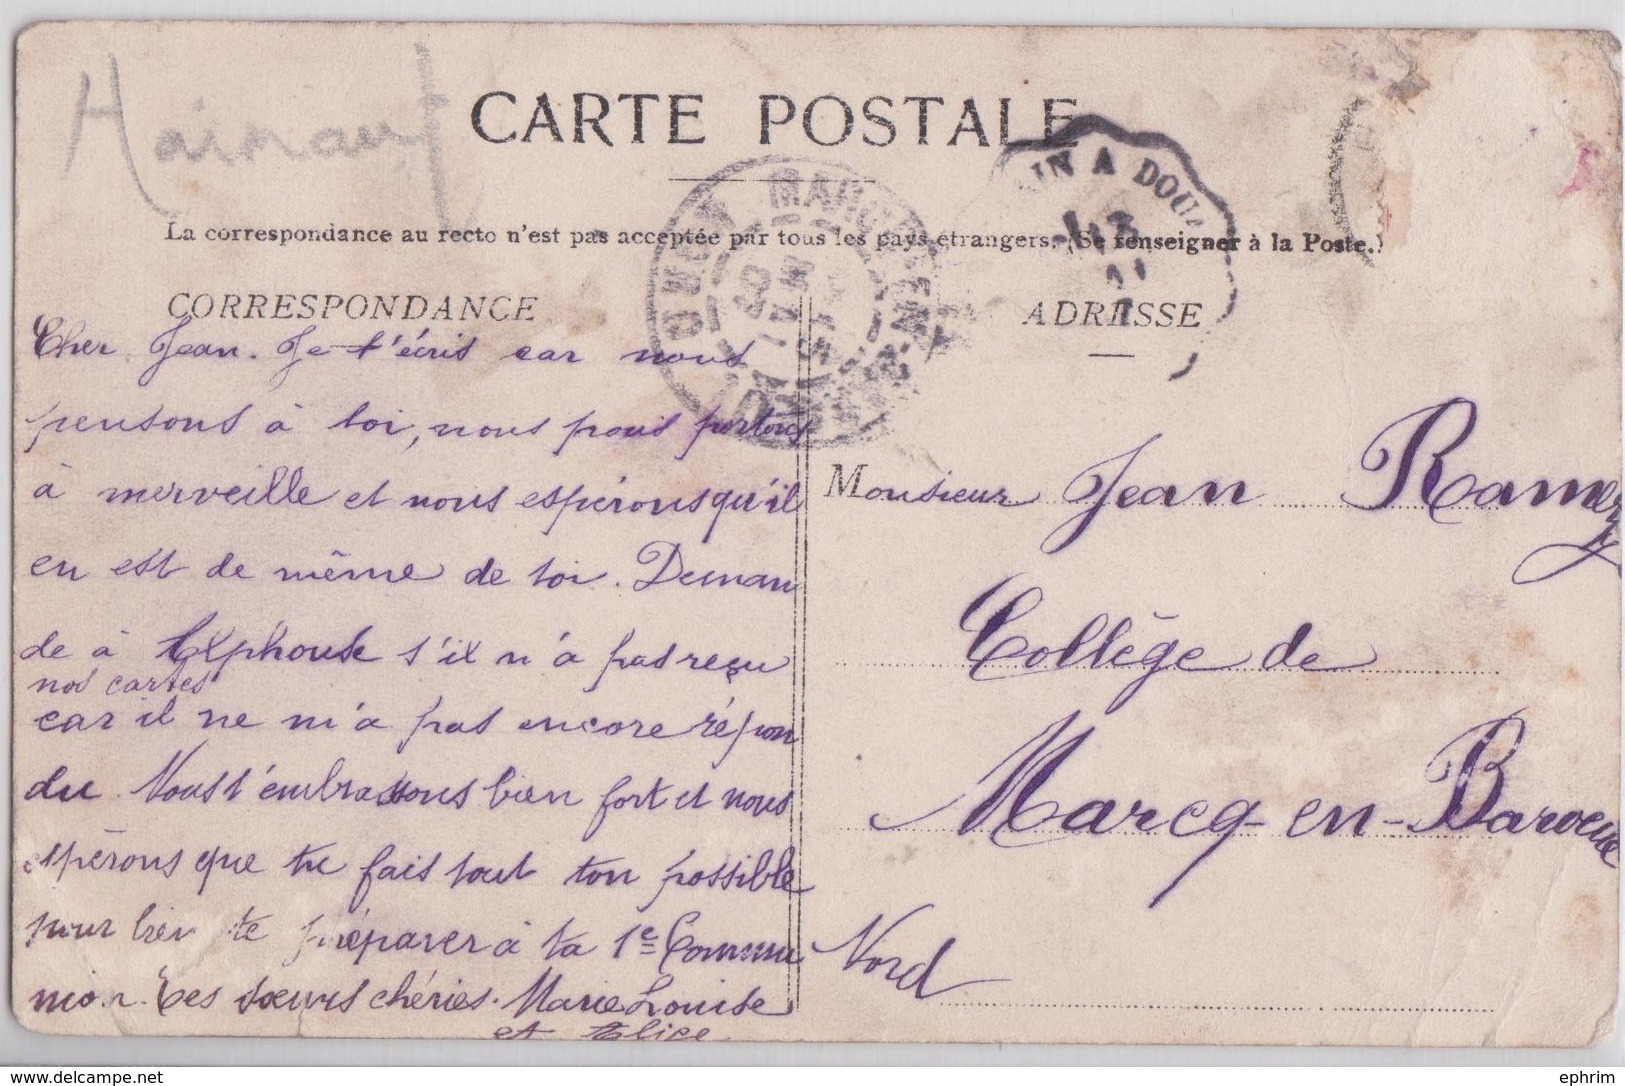 Hainaut
CARTE POSTALE
IN A DOUA
MARCQ-EN-BAROEUL
NORD
La correspondance au recto n'est pas acceptée par tous les pays étrangers. (Se renseigner à la Poste.)
CORRESPONDANCE
Cher Jean. Je t'écris car nous
pensons à toi, nous nous portons
à merveille et nous espérons qu'il
en est de même de toi. Deman
de à Alphonse s'il n'a pas reçu
nos cartes
car il ne m'a pas encore répon
du. Nous t'embrassons bien fort et nous
espérons que tu fais tout ton possible
pour bien te préparer à ta 1e Commu
nion. Tes sœurs chéries. Marie Louise
et Alice
ADRESSE
Monsieur Jean Ramery
Collège de
Marcq-en-Baroeul
Nord
www.delcampe.net
ephrim